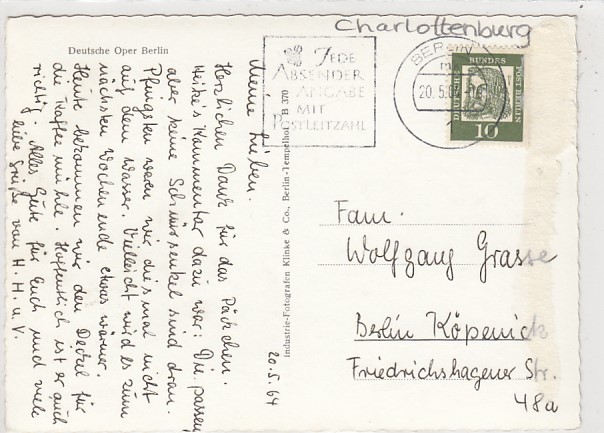 Charlottenburg
Deutsche Oper Berlin
JEDE
ABSENDER
ANGABE
MIT
POSTLEITZAHL
BERLIN
20.5.64
DEUTSCHE BUNDESPOST BERLIN
10
20.5.64
Meine Lieben.
Herzlichen Dank für das Päckchen.
Heike's Kommentar dazu war: Die passen
aber keine Schnürsenkel sind dran.
Pfingsten waren wir diesmal nicht
auf dem Wasser. Vielleicht wird es zum
nächsten Wochenende etwas wärmer.
Heute bekommen wir den Deckel für
die Kaffeemühle. Hoffentlich ist er auch
richtig. Alles Gute für Euch und viele
liebe Grüße von H. H. u. V.
Industrie-Fotografen Klinke & Co., Berlin-Tempelhof B 370
Fam.
Wolfgang Grasse
Berlin Köpenick
Friedrichshagener Str.
48a